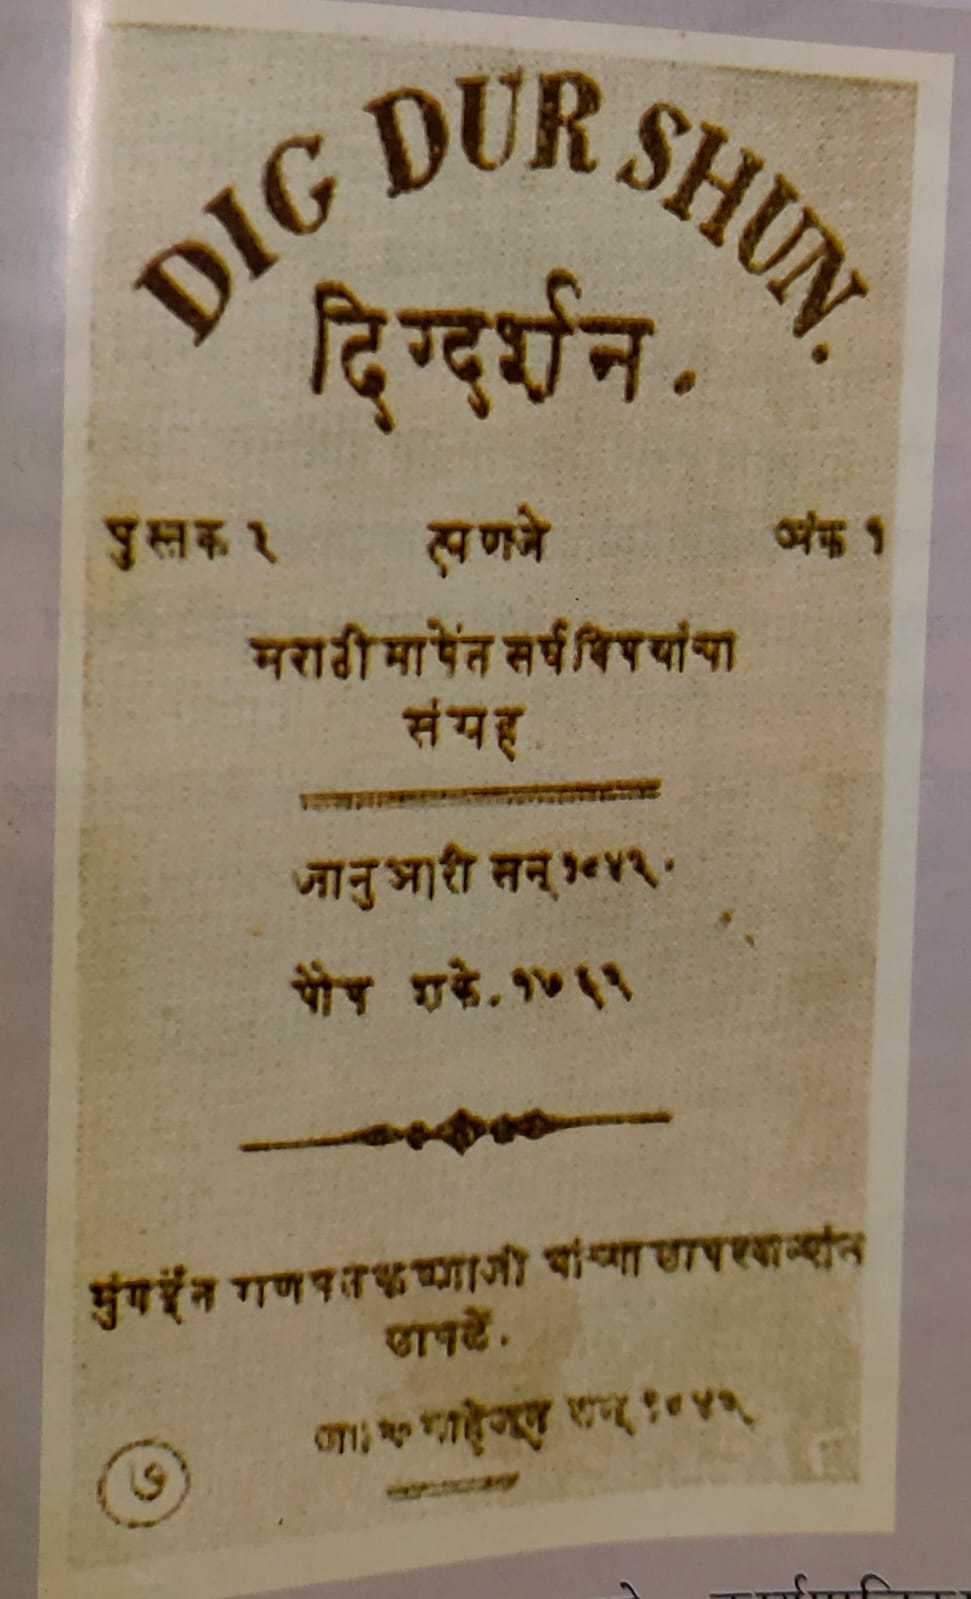 DIG DUR SHUN.
दिग्दर्शन.
पुस्तक २ ह्मणजे अंक १
मराठी भाषेंत सर्व विषयांचा
संग्रह
जानुआरी सन् १८४१.
पौष शके. १७६२
मुंबईंत गणपत कृष्णाजी यांच्या छापखान्यांत
छापलें.
सन् १८४१
७